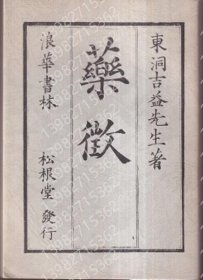 東洞吉益先生著
藥徵
浪華書林　松根堂發行